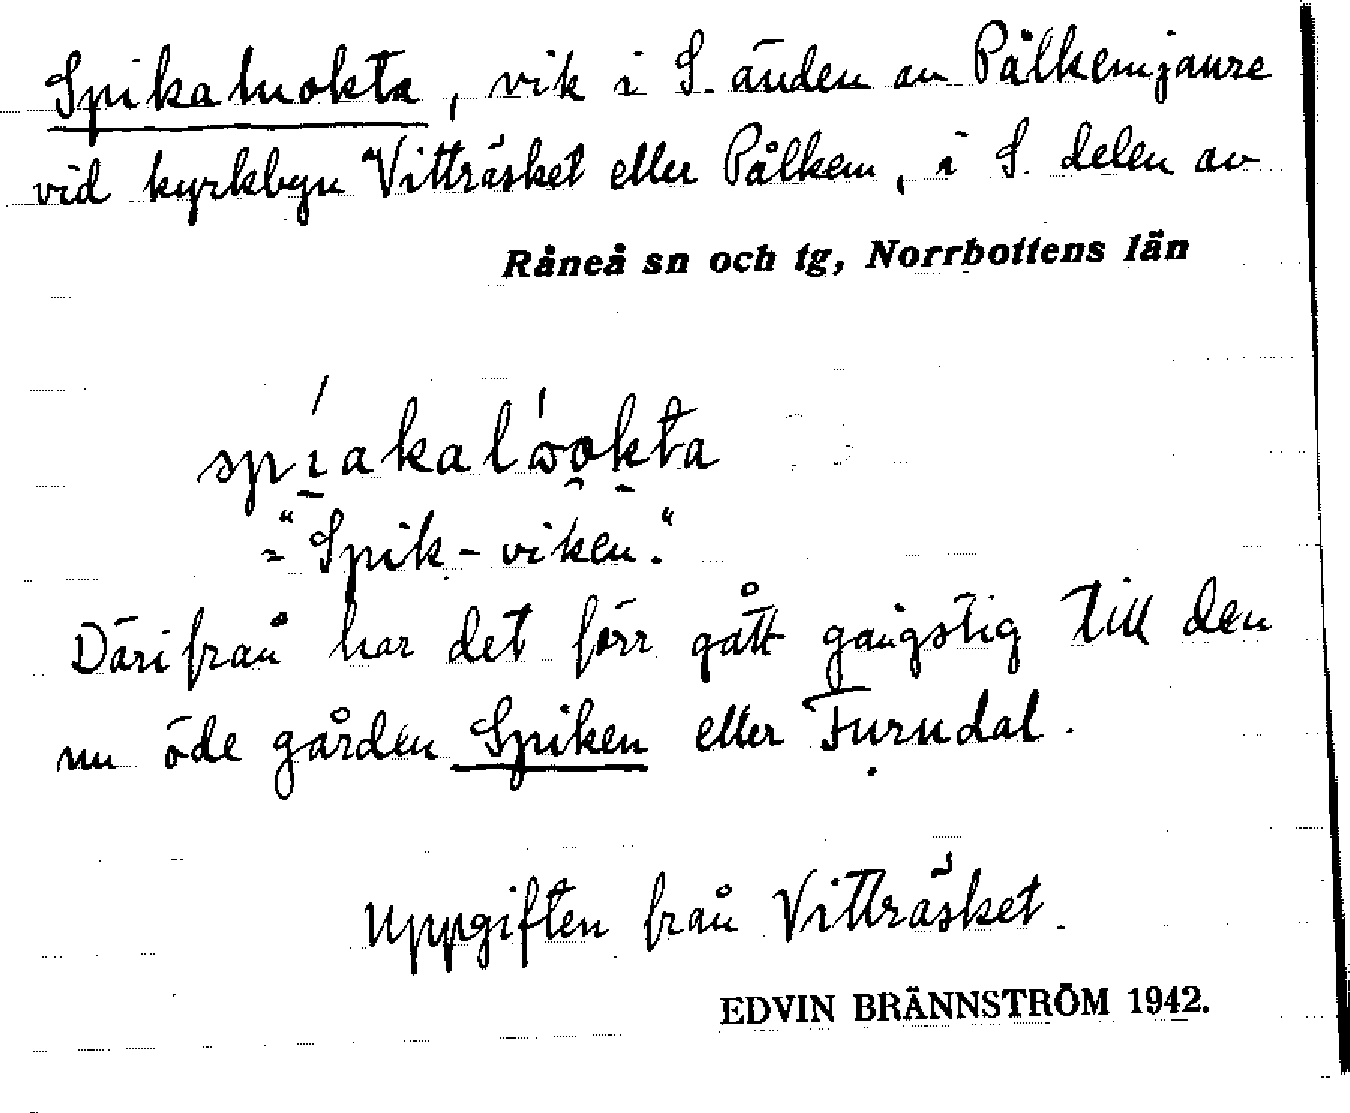 Spikaluokta, vik i S. änden av Pålkemjaure
vid kyrkbyn Vitträsket eller Pålkem, i S. delen av
Råneå sn och tg, Norrbottens län
spi̱akalωokta
= "Spik-viken."
Därifrån har det förr gått gångstig till den
nu öde gården Spiken eller Furudal.
Uppgiften från Vitträsket.
EDVIN BRÄNNSTRÖM 1942.